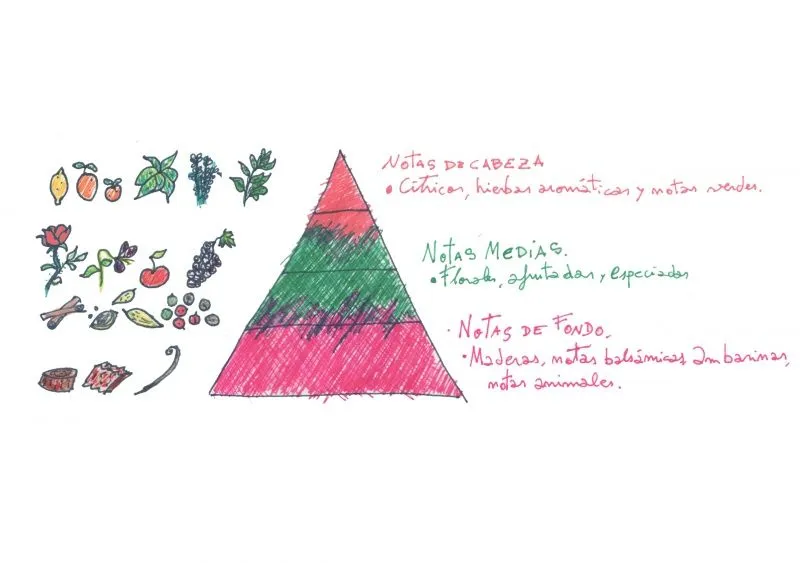 NOTAS DE CABEZA
• Cítricos, hierbas aromáticas y notas verdes.
NOTAS MEDIAS.
• Florales, afrutadas y especiadas
· NOTAS DE FONDO.
• Maderas, notas balsámicas, Ambarinas,
notas animales.